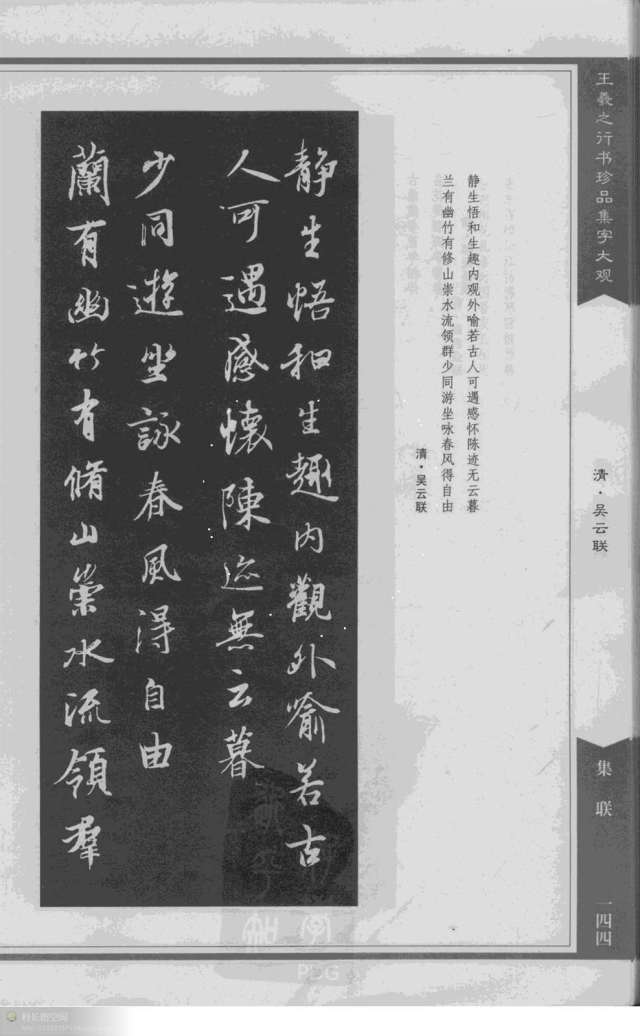 王羲之行书珍品集字大观
清·吴云联
集联
一四四
静生悟和生趣内观外喻若古人可遇感怀陈迹无云暮
兰有幽竹有修山崇水流领群少同游坐咏春风得自由
清·吴云联
静生悟和生趣內觀外喻若古
人可遇感懷陳迹無云暮
蘭有幽竹有脩山崇水流領羣
少同遊坐詠春風得自由
PDG